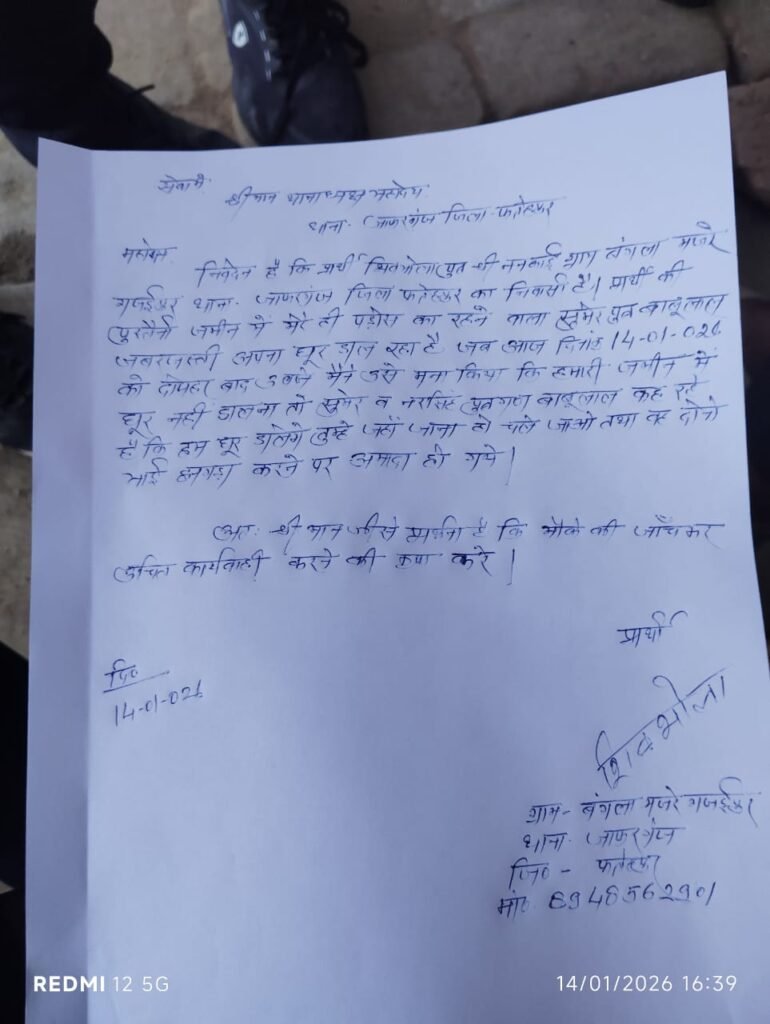 सेवा में
श्रीमान थानाध्यक्ष महोदय
थाना- जाफरगंज जिला- फतेहपुर
महोदय
निवेदन है कि प्रार्थी शिवभोला पुत्र श्री ननकाई ग्राम बंगला मजरे
गजईपुर थाना- जाफरगंज जिला फतेहपुर का निवासी है। प्रार्थी की
पुस्तैनी जमीन में मेरे ही पड़ोस का रहने वाला सुमेर पुत्र बाबूलाल
जबरजस्ती अपना घूर डाल रहा है जब आज दिनांक 14-01-026
को दोपहर बाद 3 बजे मैने उसे मना किया कि हमारी जमीन में
घूर नहीं डालना तो सुमेर व नरसिंह पुत्रगण बाबूलाल कह रहे
है कि हम घूर डालेगे तुम्हे जहाँ जाना हो चले जाओ तथा वह दोनो
भाई झगड़ा करने पर अमादा हो गये।
अतः श्रीमान जी से प्रार्थना है कि मौके की जाँचकर
उचित कार्यवाही करने की कृपा करे।
प्रार्थी
दि०
14-01-026
शिवभोला
ग्राम- बंगला मजरे गजईपुर
थाना- जाफरगंज
जि० - फतेहपुर
मो०
REDMI 12 5G
14/01/2026 16:39